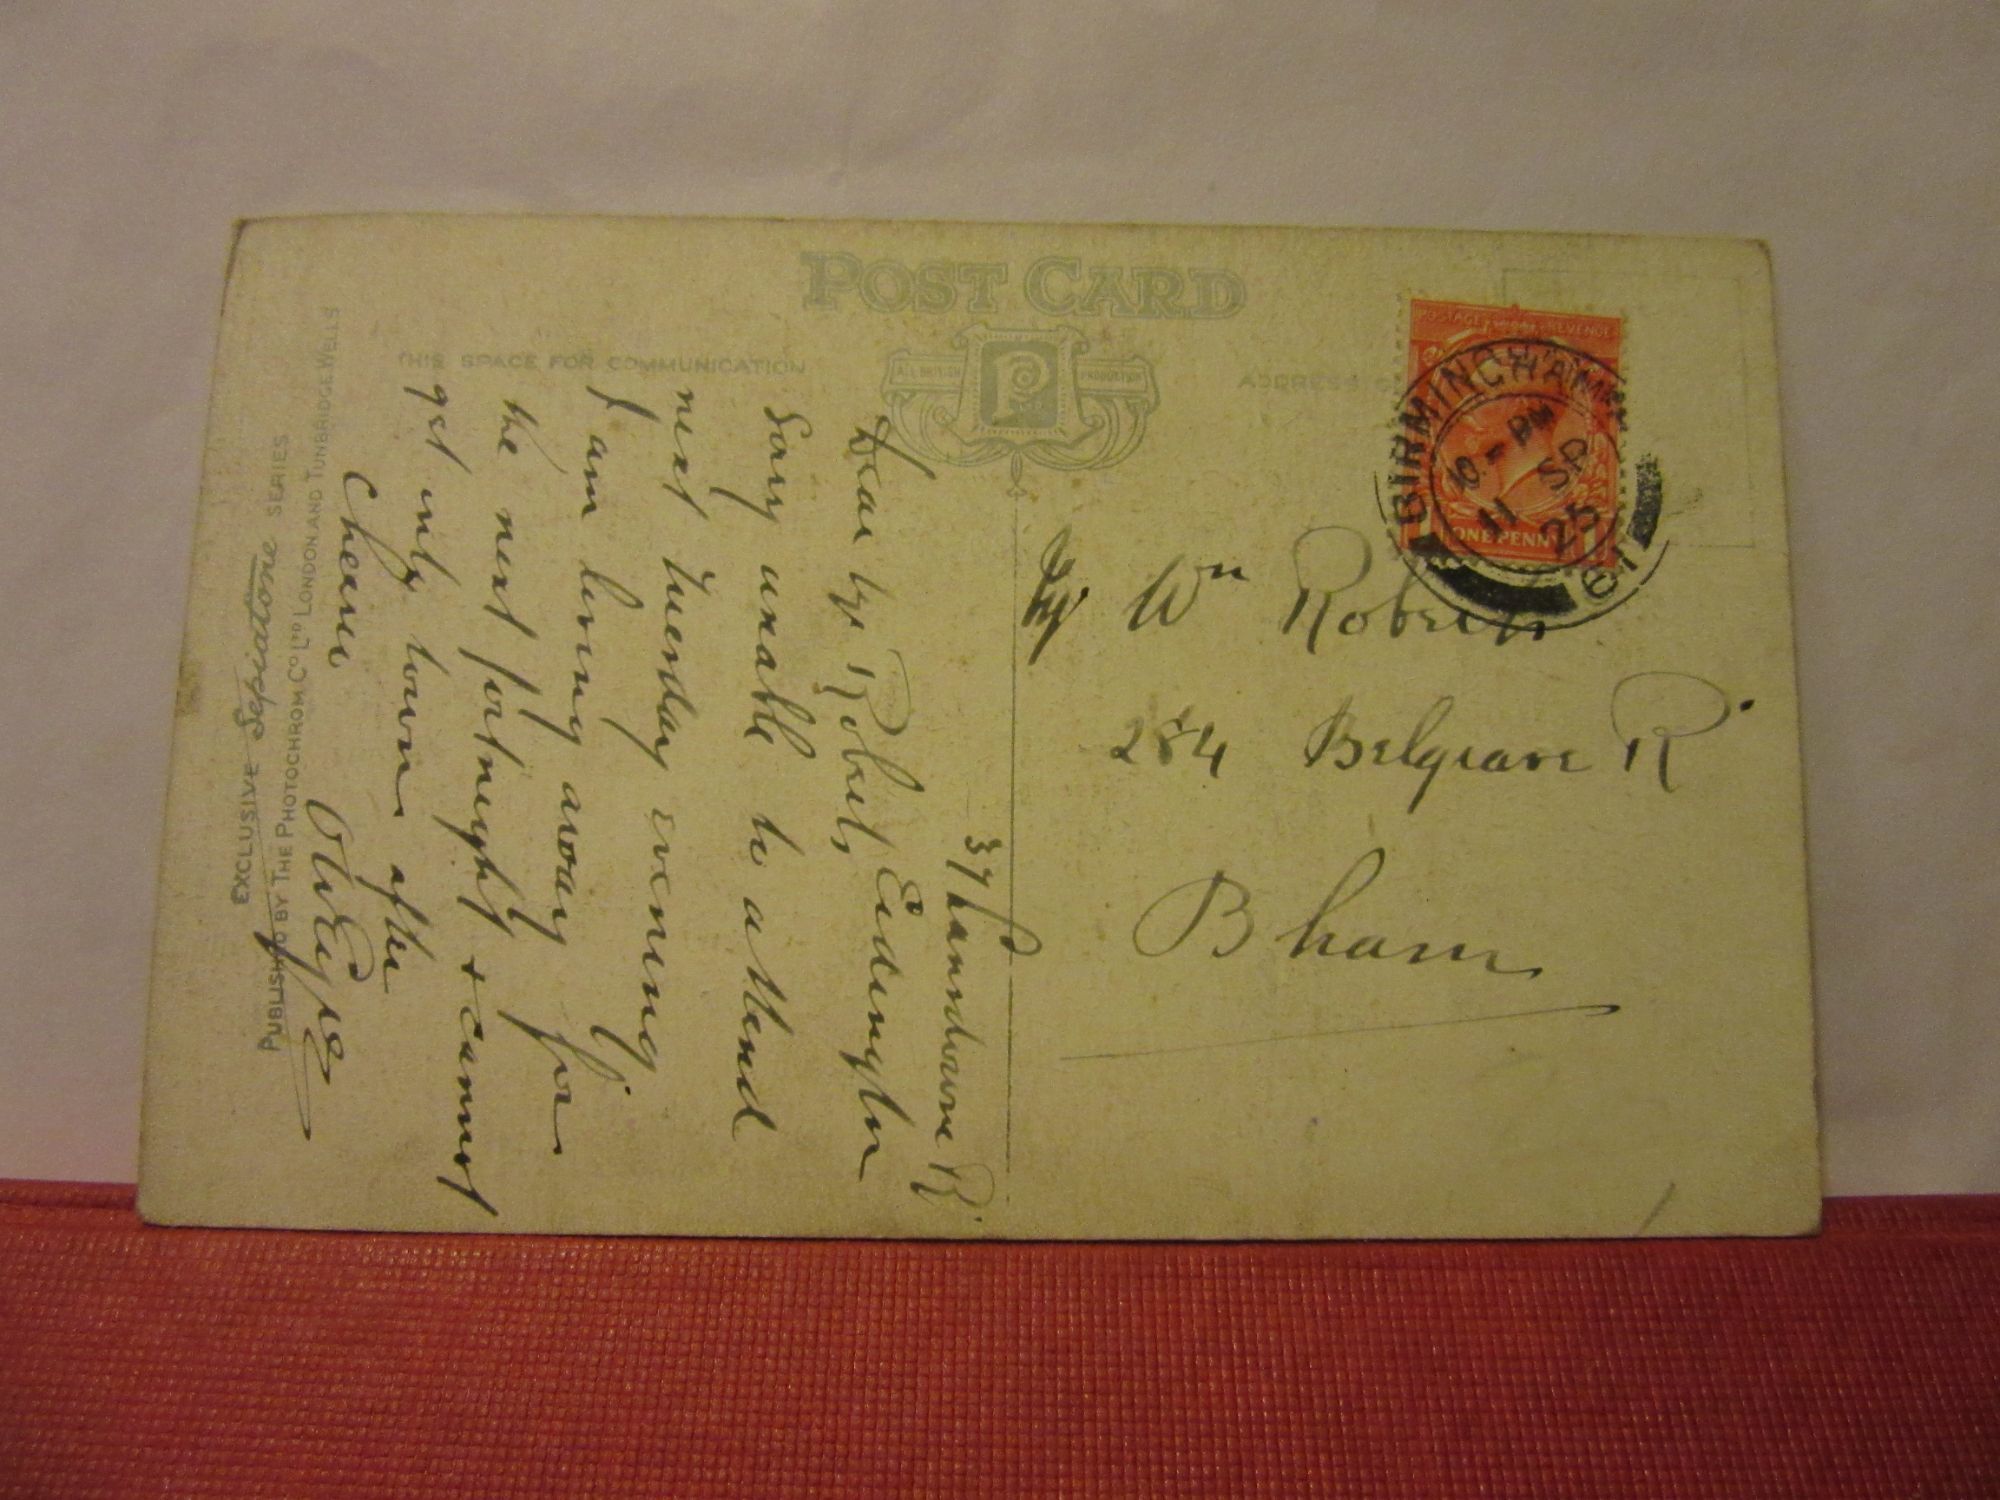 POST CARD
THIS SPACE FOR COMMUNICATION
ALL BRITISH PRODUCTION
ADDRESS
POSTAGE REVENUE
ONE PENNY
BIRMINGHAM
- PM
11 SP
25
Wm Roberts
284 Belgrave R.
Bham
37 Lansdowne R.
Erdington
Dear Mr Roberts,
Sorry unable to attend
next Tuesday evening
I am being away for
the next fortnight & cannot
get into town after
Cheerio
EXCLUSIVE Sepiatone SERIES
PUBLISHED BY THE PHOTOCHROM CO LTD LONDON AND TUNBRIDGE WELLS